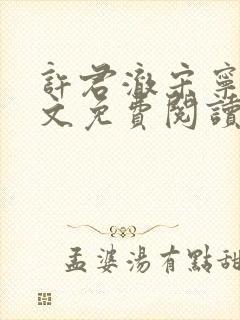 許君澈宋寧
文免費閱讀
孟婆湯有點甜